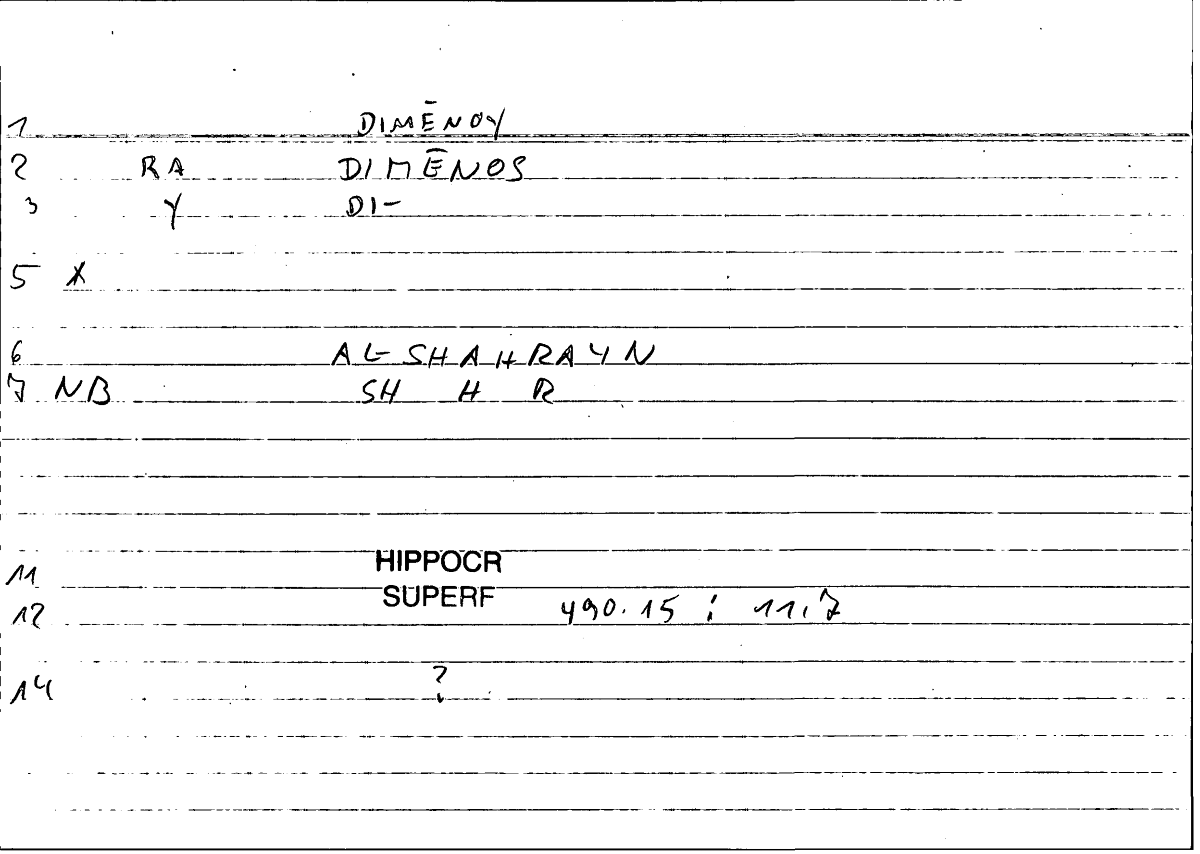 1 DIMĒNOY
2 RA DIMĒNOS
3 Y DI-
5 *
6 AL-SHAHRAYN
7 NB SH H R
11 HIPPOCR
12 SUPERF 490.15 ; 11,7
14 ?